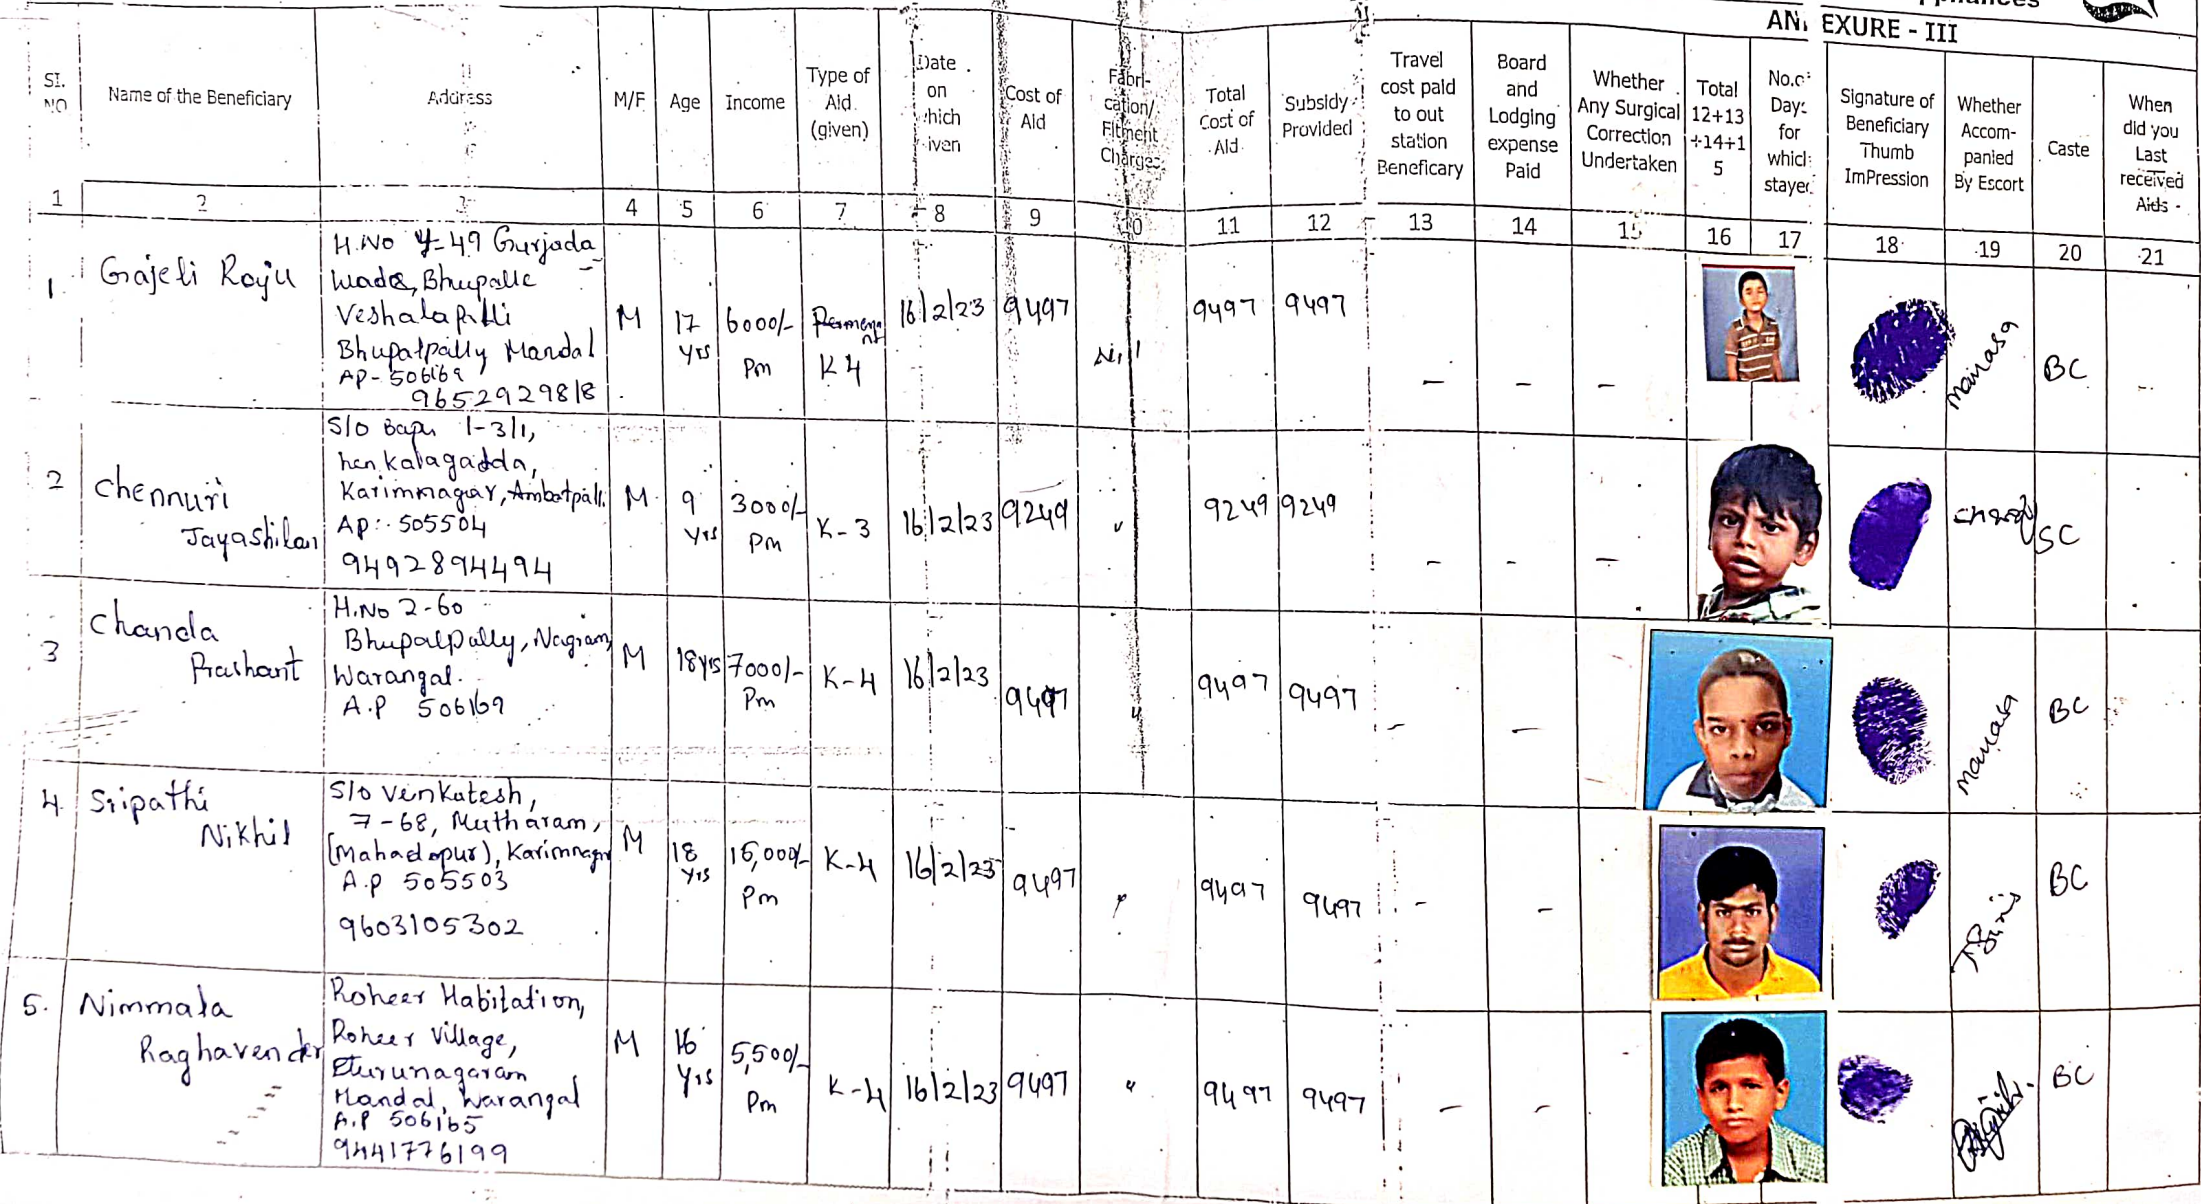 ANNEXURE - III
SI. NO
Name of the Beneficiary
Address
M/F
Age
Income
Type of Aid (given)
Date on which given
Cost of Aid
Fabri-cation/ Fitment Charges
Total Cost of Aid
Subsidy Provided
Travel cost paid to out station Beneficary
Board and Lodging expense Paid
Whether Any Surgical Correction Undertaken
Total 12+13 +14+1 5
No.of Days for which stayed
Signature of Beneficiary Thumb ImPression
Whether Accom-panied By Escort
Caste
When did you Last received Aids
1 2 3 4 5 6 7 8 9 10 11 12 13 14 15 16 17 18 19 20 21
1. Gajeli Raju
H.No 4-49 Gurjada
Wada, Bhupalle
Veshalapilli
Bhupalpally Mandal
AP- 506169
9652929818
M 17 yrs 6000/- Pm Permenant K4 16/2/23 9497 Nill 9497 9497 - - - manasa BC -
2 Chennuri Jayashilan
S/o Bapu 1-3/1,
henkalagadda,
Karimnagar, Ambatpalli
Ap:- 505504
9492894494
M 9 yrs 3000/- Pm K-3 16/2/23 9249 " 9249 9249 - - - SC
3 Chanda Prashant
H.No 2-60
Bhupalpally, Nagram,
Warangal.
A.P 506169
M 18yrs 7000/- Pm K-4 16/2/23 9497 " 9497 9497 - - manasa BC
4. Sripathi Nikhil
S/o Venkatesh,
7-68, Mutharam,
(Mahadepur), Karimnagar
A.P 505503
9603105302
M 18 yrs 15,000/- Pm K-4 16/2/23 9497 " 9497 9497 - - BC
5. Nimmala Raghavender
Roheer Habitation,
Roheer Village,
Eturunagaram
Mandal, Warangal
A.P 506165
9441776199
M 16 yrs 5,500/- Pm K-4 16/2/23 9497 " 9497 9497 - - BC